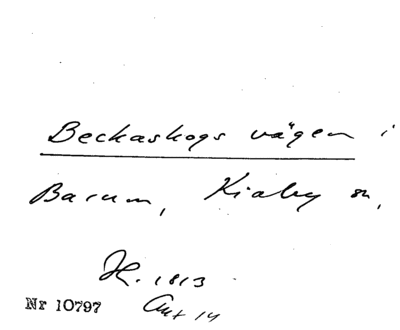 Beckaskogs vägen i
Barum, Kiaby sn,
H. 1813
Nr 10797 Ant 14